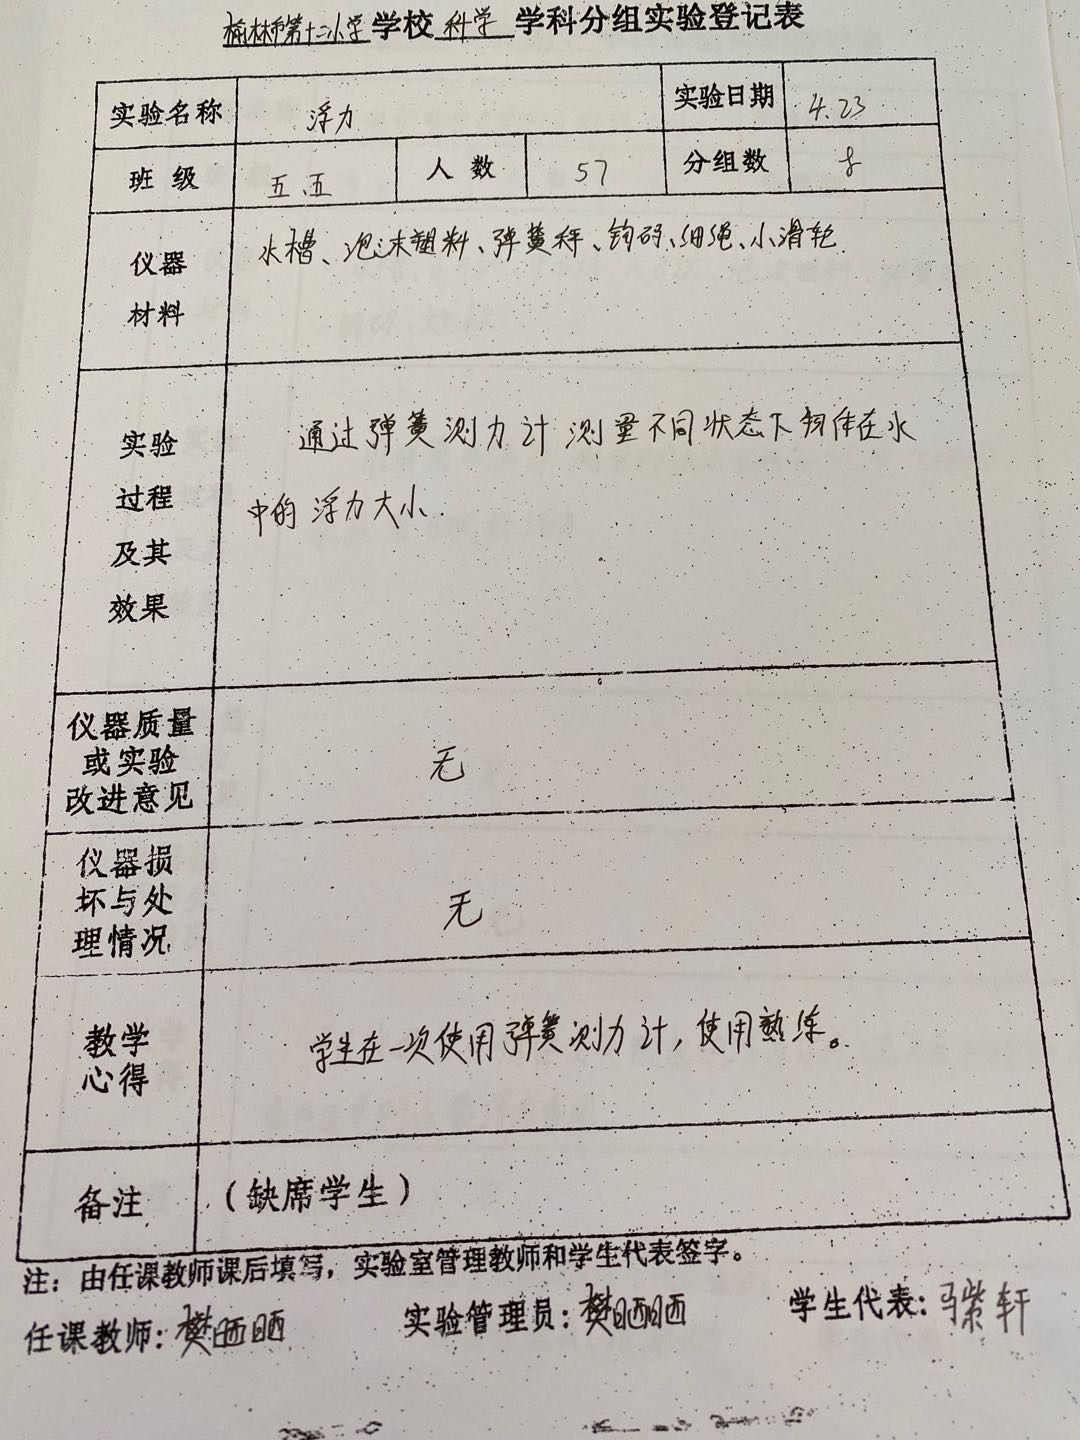 榆林市第十二小学学校科学学科分组实验登记表
实验名称 浮力 实验日期 4.23
班级 五.五 人数 57 分组数 8
仪器
材料
水槽、泡沫塑料、弹簧秤、钩码、细绳、小滑轮
实验
过程
及其
效果
通过弹簧测力计测量不同状态下物体在水
中的浮力大小.
仪器质量
或实验
改进意见
无
仪器损
坏与处
理情况
无
教学
心得
学生在一次使用弹簧测力计,使用熟练。
备注 (缺席学生)
注:由任课教师课后填写,实验室管理教师和学生代表签字。
任课教师:樊晒晒 实验管理员:樊晒晒 学生代表:马紫轩